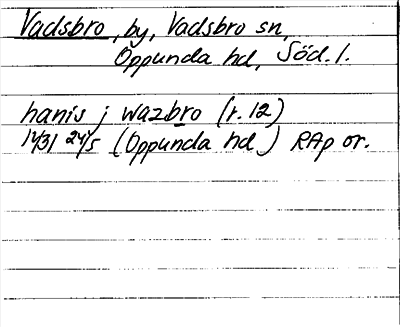 Vadsbro, by, Vadsbro sn,
Oppunda hd, Söd. l.
hanis j wazbro (r. 12)
1431 24/5 (Oppunda hd) RAp or.